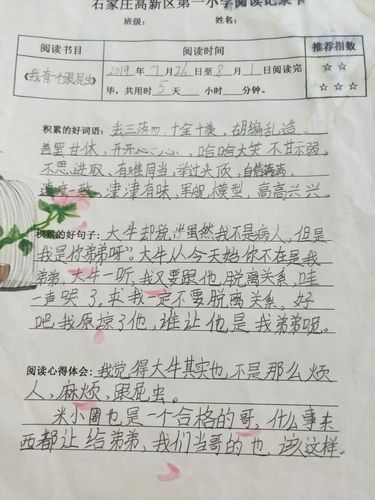 石家庄高新区第一小学阅读记录卡
班级： 姓名：
阅读书目 阅读时间 推荐指数
《我有个跟屁虫》 2019年7月26日至8月1日阅读完 ☆ ☆
毕，共用时5天 小时 分钟。 ☆ ☆ ☆
积累的好词语：丢三落四、十全十美、胡编乱造、
善罢甘休、开开心心、哈哈大笑 不甘示弱、
不思进取、有难同当、举过头顶、自信满满、
津津有味、军舰、模型、高高兴兴、
积累的好句子：大牛却说,“虽然我不是病人，但是
我是你弟弟呀”。大牛从今天始你不在是我
弟弟，大牛一听,我又要跟他,脱离关系,哇
一声哭了,求我一定不要脱离关系，好
吧我原谅了他，谁让他是我弟弟呢。
阅读心得体会：我觉得大牛其实也,不是那么烦
人、麻烦、跟屁虫。
米小圈也是一个合格的哥，什么事东
西都让给弟弟，我们当哥的也，该这样。